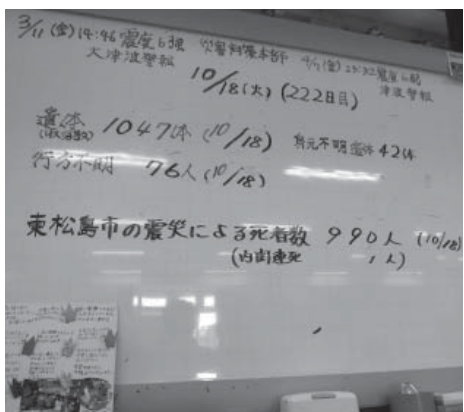 3/11(金)14:46 震度6強 災害対策本部 4/7(金)23:32 震度6弱
大津波警報 津波警報
10/18(火)(222日目)
遺体 1047体(10/18) 身元不明遺体42体
(収容数)
行方不明 76人(10/18)
東松島市の震災による死者数 990人(10/18)
(内関連死 1人)